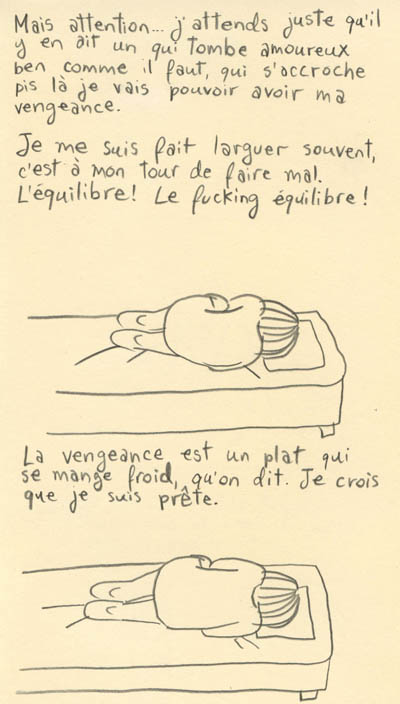 Mais attention... j'attends juste qu'il
y en ait un qui tombe amoureux
ben comme il faut, qui s'accroche
pis là je vais pouvoir avoir ma
vengeance.
Je me suis fait larguer souvent,
c'est à mon tour de faire mal.
L'équilibre! Le fucking équilibre!
La vengeance est un plat qui
se mange froid, qu'on dit. Je crois
que je suis prête.